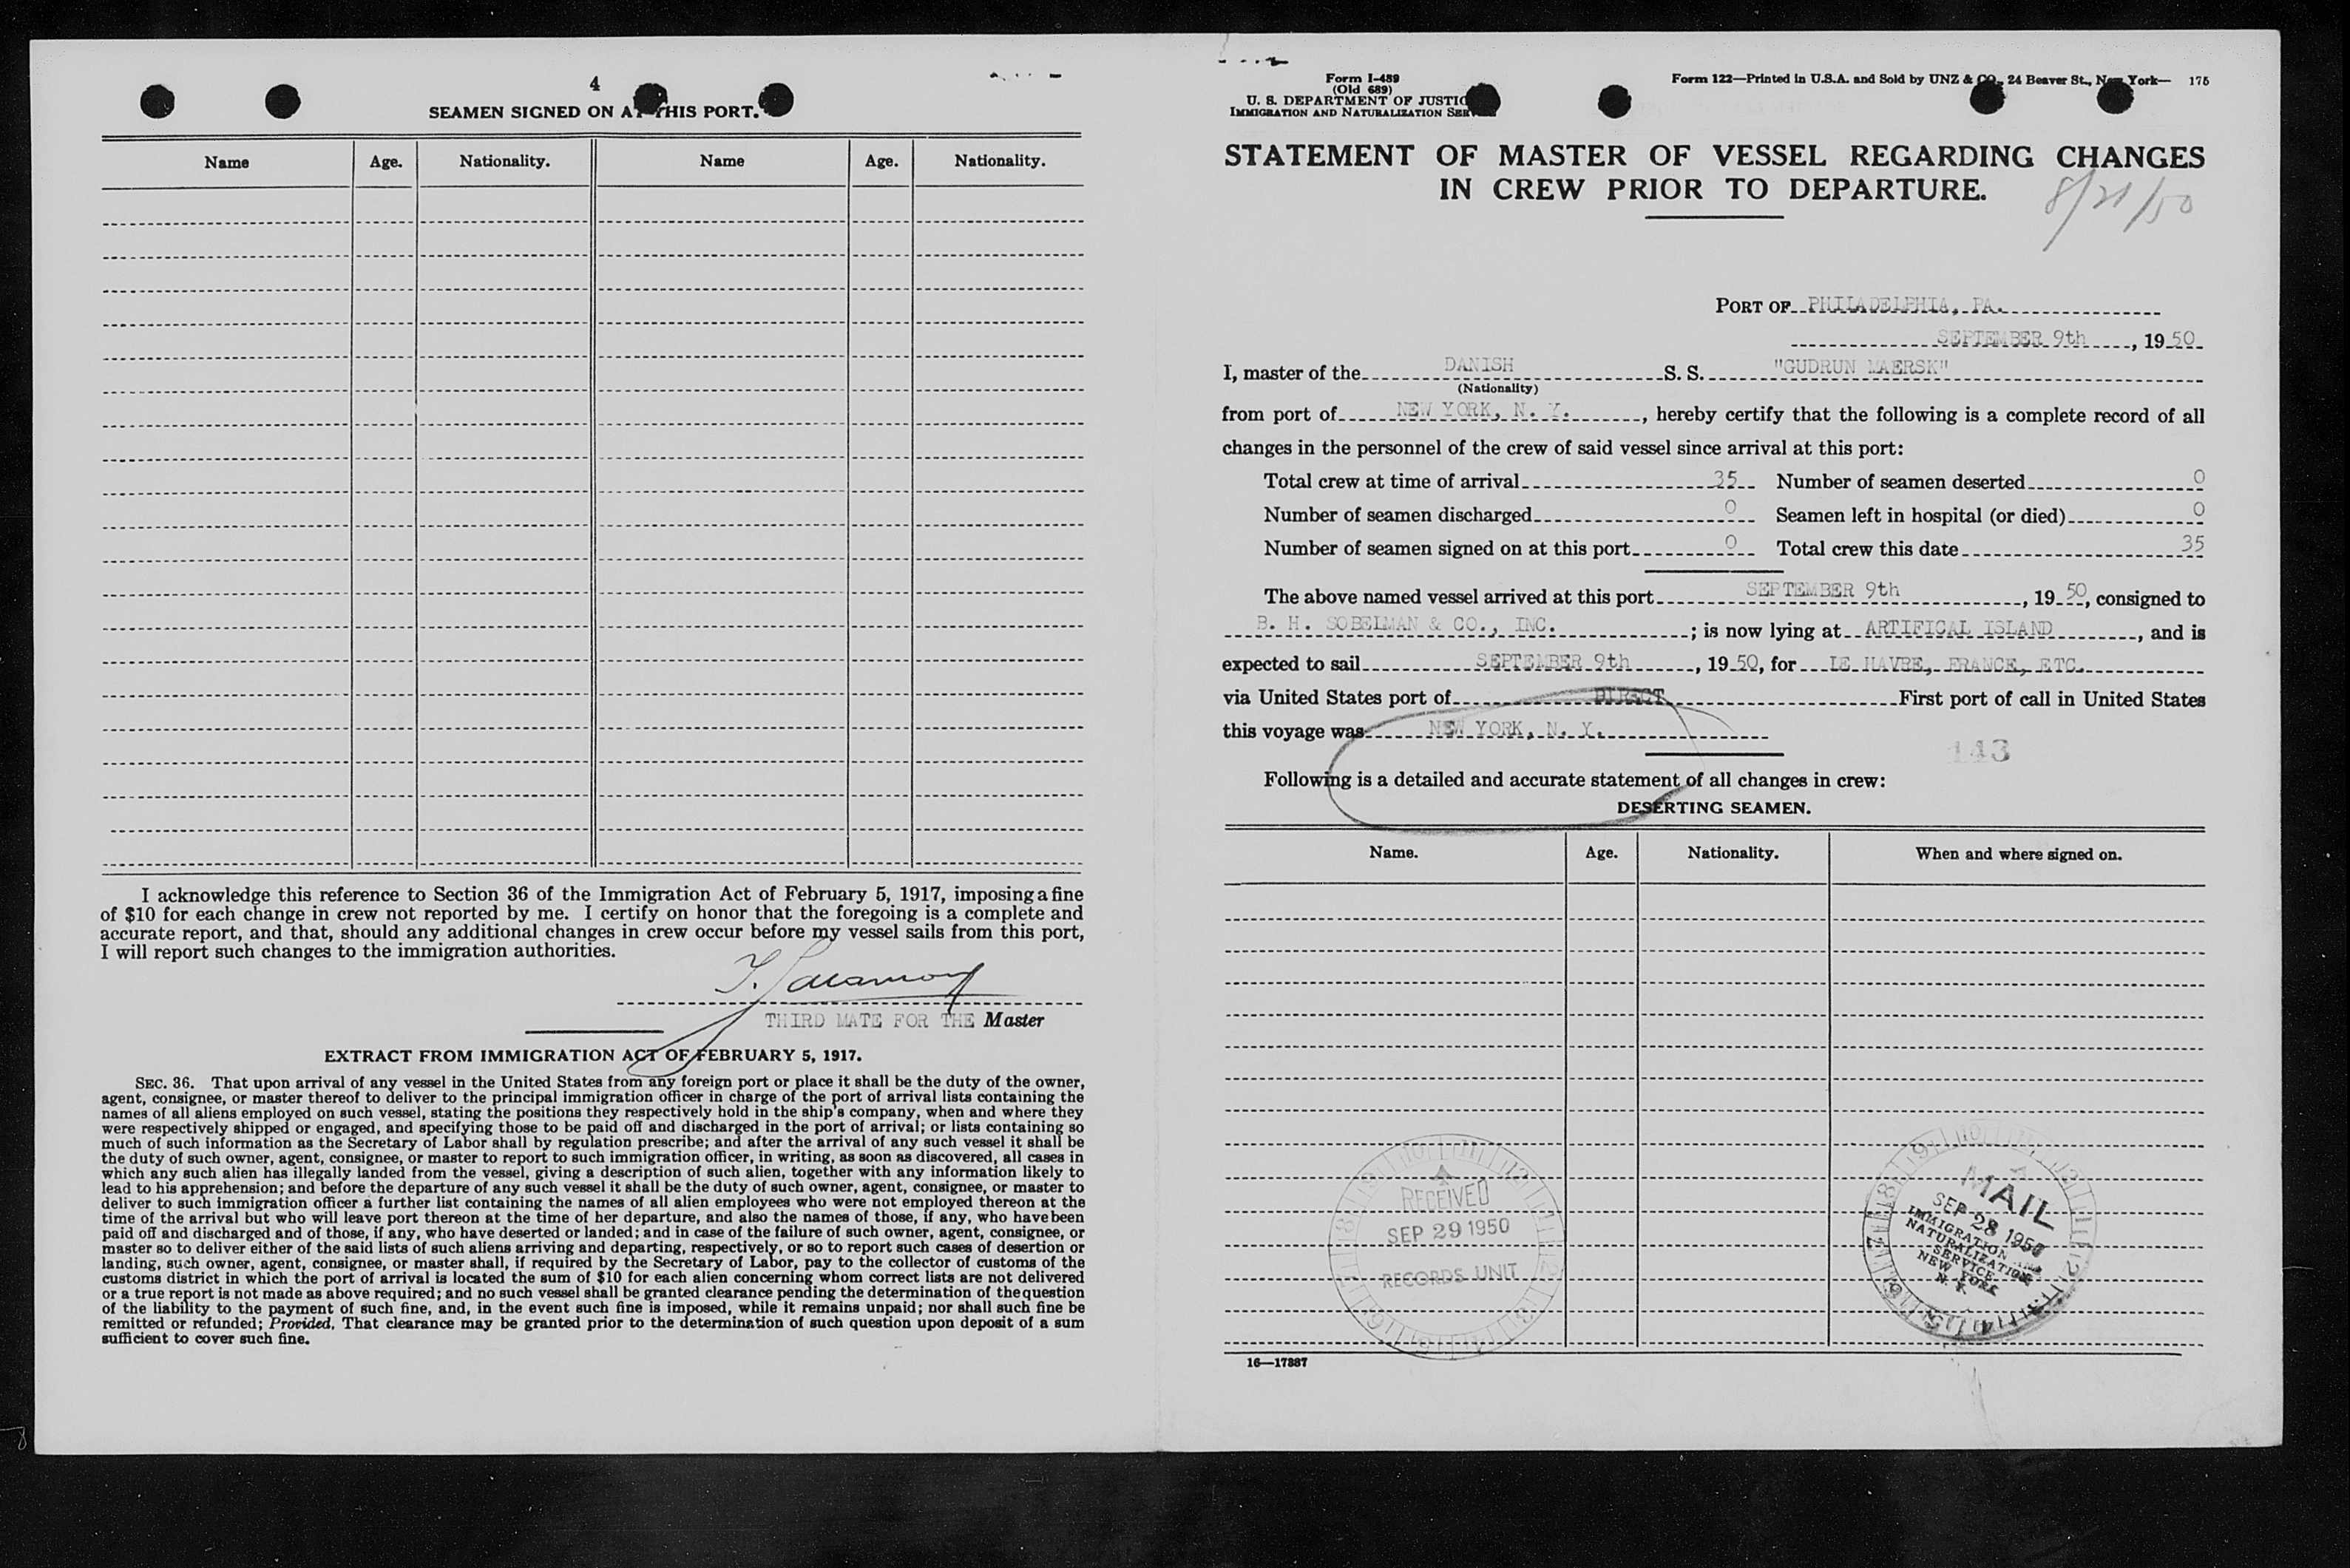 4
SEAMEN SIGNED ON AT THIS PORT.
Name Age. Nationality. Name Age. Nationality.
I acknowledge this reference to Section 36 of the Immigration Act of February 5, 1917, imposing a fine
of $10 for each change in crew not reported by me. I certify on honor that the foregoing is a complete and
accurate report, and that, should any additional changes in crew occur before my vessel sails from this port,
I will report such changes to the immigration authorities.
THIRD MATE FOR THE Master
EXTRACT FROM IMMIGRATION ACT OF FEBRUARY 5, 1917.
SEC. 36. That upon arrival of any vessel in the United States from any foreign port or place it shall be the duty of the owner,
agent, consignee, or master thereof to deliver to the principal immigration officer in charge of the port of arrival lists containing the
names of all aliens employed on such vessel, stating the positions they respectively hold in the ship's company, when and where they
were respectively shipped or engaged, and specifying those to be paid off and discharged in the port of arrival; or lists containing so
much of such information as the Secretary of Labor shall by regulation prescribe; and after the arrival of any such vessel it shall be
the duty of such owner, agent, consignee, or master to report to such immigration officer, in writing, as soon as discovered, all cases in
which any such alien has illegally landed from the vessel, giving a description of such alien, together with any information likely to
lead to his apprehension; and before the departure of any such vessel it shall be the duty of such owner, agent, consignee, or master to
deliver to such immigration officer a further list containing the names of all alien employees who were not employed thereon at the
time of the arrival but who will leave port thereon at the time of her departure, and also the names of those, if any, who have been
paid off and discharged and of those, if any, who have deserted or landed; and in case of the failure of such owner, agent, consignee, or
master so to deliver either of the said lists of such aliens arriving and departing, respectively, or so to report such cases of desertion or
landing, such owner, agent, consignee, or master shall, if required by the Secretary of Labor, pay to the collector of customs of the
customs district in which the port of arrival is located the sum of $10 for each alien concerning whom correct lists are not delivered
or a true report is not made as above required; and no such vessel shall be granted clearance pending the determination of the question
of the liability to the payment of such fine, and, in the event such fine is imposed, while it remains unpaid; nor shall such fine be
remitted or refunded; Provided, That clearance may be granted prior to the determination of such question upon deposit of a sum
sufficient to cover such fine.
Form I-489
(Old 689)
U. S. DEPARTMENT OF JUSTICE
IMMIGRATION AND NATURALIZATION SERVICE
Form 122—Printed in U.S.A. and Sold by UNZ & CO., 24 Beaver St., New York— 175
STATEMENT OF MASTER OF VESSEL REGARDING CHANGES
IN CREW PRIOR TO DEPARTURE.
8/21/50
PORT OF PHILADELPHIA, PA.
SEPTEMBER 9th, 1950
I, master of the DANISH S. S. "GUDRUN MAERSK"
(Nationality)
from port of NEW YORK, N. Y., hereby certify that the following is a complete record of all
changes in the personnel of the crew of said vessel since arrival at this port:
Total crew at time of arrival 35 Number of seamen deserted 0
Number of seamen discharged 0 Seamen left in hospital (or died) 0
Number of seamen signed on at this port 0 Total crew this date 35
The above named vessel arrived at this port SEPTEMBER 9th, 1950, consigned to
B. H. SOBELMAN & CO., INC.; is now lying at ARTIFICAL ISLAND, and is
expected to sail SEPTEMBER 9th, 1950, for LE HAVRE, FRANCE, ETC.
via United States port of DIRECT First port of call in United States
this voyage was NEW YORK, N. Y.
143
Following is a detailed and accurate statement of all changes in crew:
DESERTING SEAMEN.
Name. Age. Nationality. When and where signed on.
RECEIVED
SEP 29 1950
RECORDS UNIT
MAIL
SEP 28 1950
IMMIGRATION
NATURALIZATION
SERVICE
NEW YORK
N. Y.
16—17887